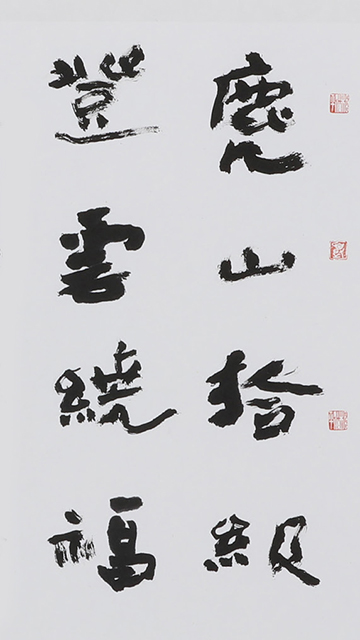 麂山拾級
登雲繞福